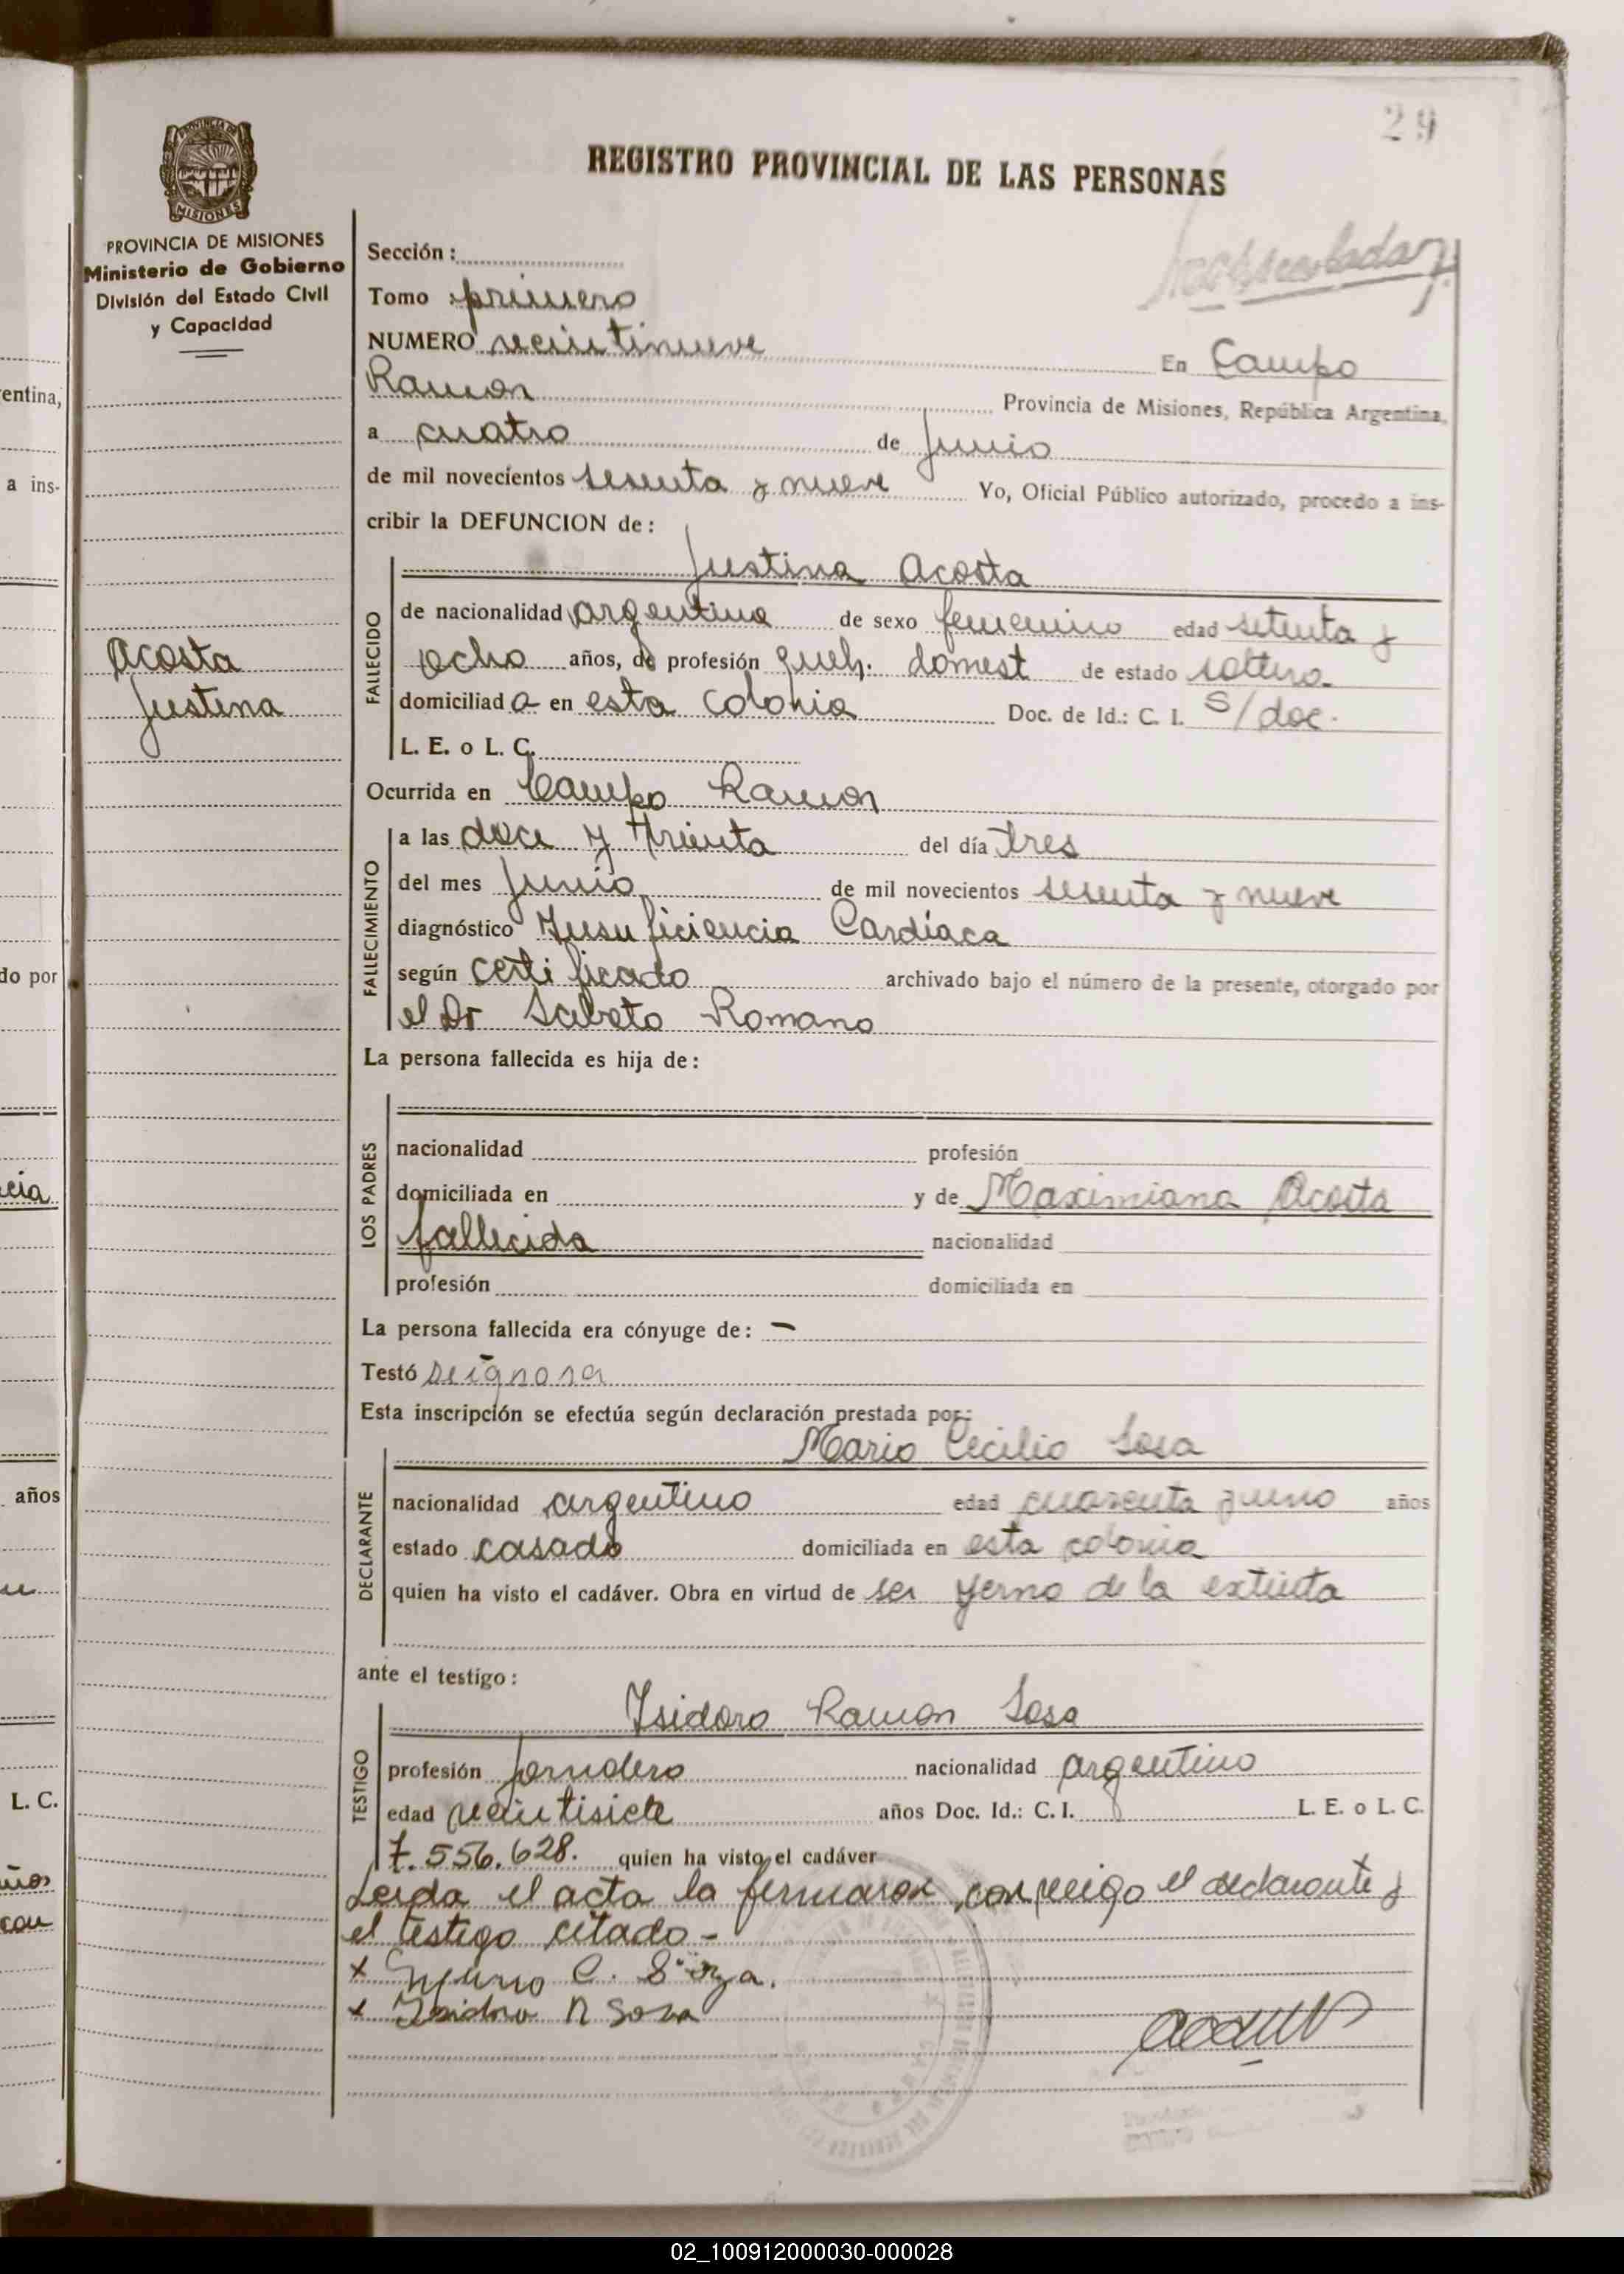 29
REGISTRO PROVINCIAL DE LAS PERSONAS
PROVINCIA DE
MISIONES
PROVINCIA DE MISIONES
Ministerio de Gobierno
División del Estado Civil
y Capacidad
Sección :
Tomo primero
NUMERO veintinueve En Campo
Ramon Provincia de Misiones, República Argentina,
a cuatro de Junio
de mil novecientos sesenta y nueve Yo, Oficial Público autorizado, procedo a ins-
cribir la DEFUNCION de :
Acosta
Justina
FALLECIDO
Justina Acosta
de nacionalidad argentina de sexo femenino edad setenta y
ocho años, de profesión queh. domest de estado soltera
domiciliad a en esta colonia Doc. de Id.: C. I. S/doc.
L. E. o L. C.
Ocurrida en Campo Ramon
FALLECIMIENTO
a las doce y treinta del día tres
del mes Junio de mil novecientos sesenta y nueve
diagnóstico Insuficiencia Cardíaca
según certificado archivado bajo el número de la presente, otorgado por
el Dr Sabato Romano
La persona fallecida es hija de :
LOS PADRES
nacionalidad profesión
domiciliada en y de Maximiana Acosta
fallecida nacionalidad
profesión domiciliada en
La persona fallecida era cónyuge de : –
Testó se ignora
Esta inscripción se efectúa según declaración prestada por :
DECLARANTE
Mario Cecilio Sosa
nacionalidad argentino edad cuarenta y uno años
estado casado domiciliada en esta colonia
quien ha visto el cadáver. Obra en virtud de ser yerno de la extinta
ante el testigo :
TESTIGO
Isidoro Ramon Sosa
profesión Jornalero nacionalidad argentino
edad veintisiete años Doc. Id.: C. I. L. E. o L. C.
7.556.628. quien ha visto el cadáver
Leida el acta la firmaron conmigo el declarante y
el testigo citado -
x C.
x Isidoro R Sosa
entina,
a ins-
do por
cia
años
L. C.
ños
con
02_100912000030-000028